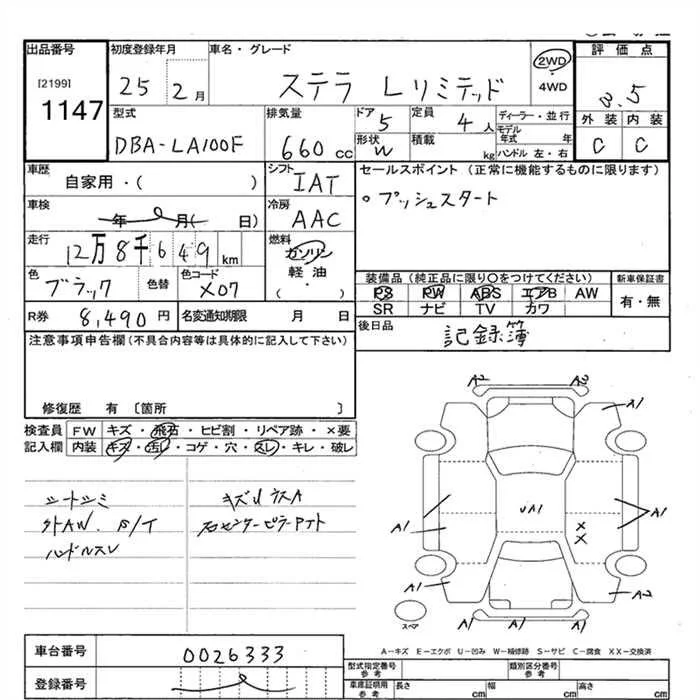 出品番号 初度登録年月 車名・グレード 評価点
[2199] 1147 25 2月 ステラ Lリミテッド 2WD 4WD 3.5
型式 排気量 ドア 定員 ディーラー・並行 外装 内装
DBA-LA100F 660cc 5 4人 モデル年式 年 C C
形状 W 積載 kg ハンドル 左・右
車歴 シフト セールスポイント (正常に機能するものに限ります)
自家用・( ) IAT 。プッシュスタート
車検 冷房
年 月( 日) AAC
走行 燃料
12万8千649km ガソリン
軽油
( ・ )
色 色替 色コード 装備品 (純正品に限り○をつけてください) 新車保証書
ブラック X07 PS PW ABS エアB AW 有・無
SR ナビ TV カワ
R券 8,490円 名変通知期限 月 日 後日品 記録簿
注意事項申告欄(不具合内容等は具体的に記入して下さい)
修復歴 有 [箇所 ]
検査員 FW キズ・飛石・ヒビ割・リペア跡・×要
記入欄 内装 キズ・汚レ・コゲ・穴・スレ・キレ・破レ
シートシミ
外AW. B/T
ハンドルスレ
A2 A2
A1
A1 UA1 A1
X
X
A1 A2
A1 A1
スペア
A-キズ E-エクボ U-凹み W-補修跡 S-サビ C-腐食 XX-交換済
車台番号 0026333 型式指定番号 参考 類別区分番号 参考
登録番号 車庫証明用 参考 長さ cm 幅 cm 高さ cm